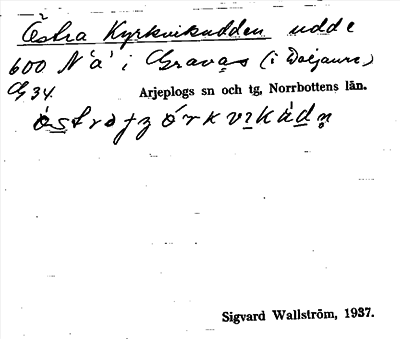 Östra Kyrkvikudden udde
600 N å i Gravas (i Doljaure)
G 34. Arjeplogs sn och tg, Norrbottens län.
Sigvard Wallström, 1937.